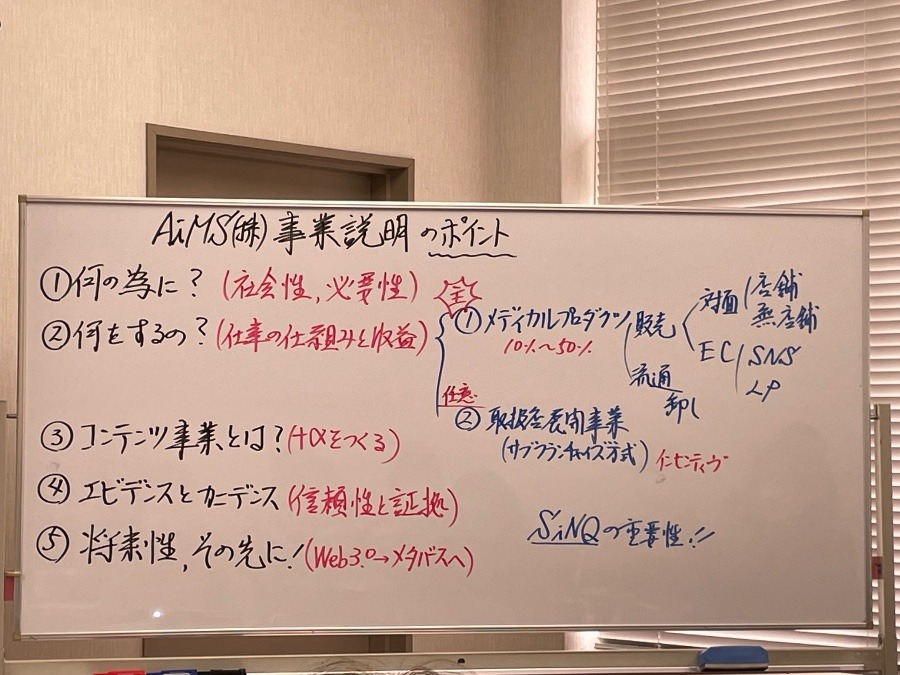 AiMS(株)事業説明のポイント
①何の為に?(社会性,必要性)
②何をするの?(仕事の仕組みと収益)
主
①メディカルプロダクツ
10%〜50%
販売
対面
店舗
無店舗
EC
SNS
LP
流通
卸し
任意
②取扱店展開事業
(サブフランチャイズ方式)
インセンティブ
③コンテンツ事業とは?(+αをつくる)
④エビデンスとカニデンス(信頼性と証拠)
SiNQの重要性!!
⑤将来性,その先に!(Web3.0→メタバースへ)